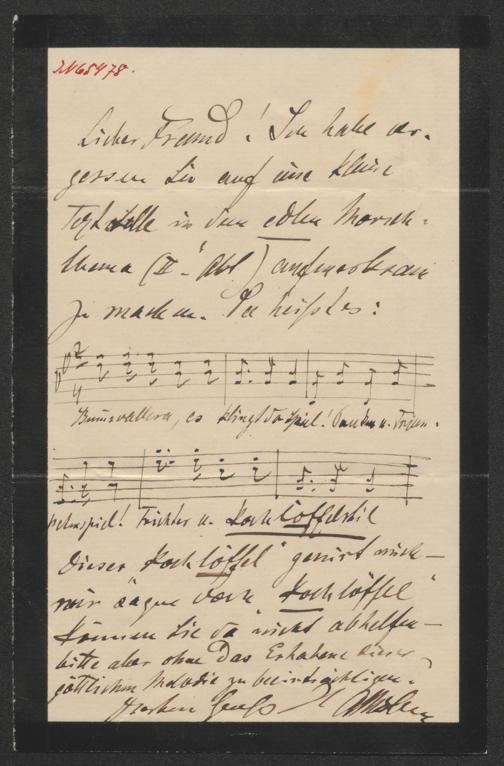 JN65478.
Lieber Freund! Ich habe ver-
gessen Sie auf eine kleine
Textstelle in dem edlen Marsch-
thema (II. Abt) aufmerksam
zu machen. Da heißt es:
Bumsvallera, es klingt das Spiel! Pauken u. Trom-
petenspiel! Trichter u. Kochlöffelstil
Dieser "Kochlöffel" genirt mich —
"Kochlöffel"
Können Sie da nicht abhelfen —
bitte aber ohne das Erhabene dieser
göttlichen Melodie zu beeinträchtigen.
Gruß